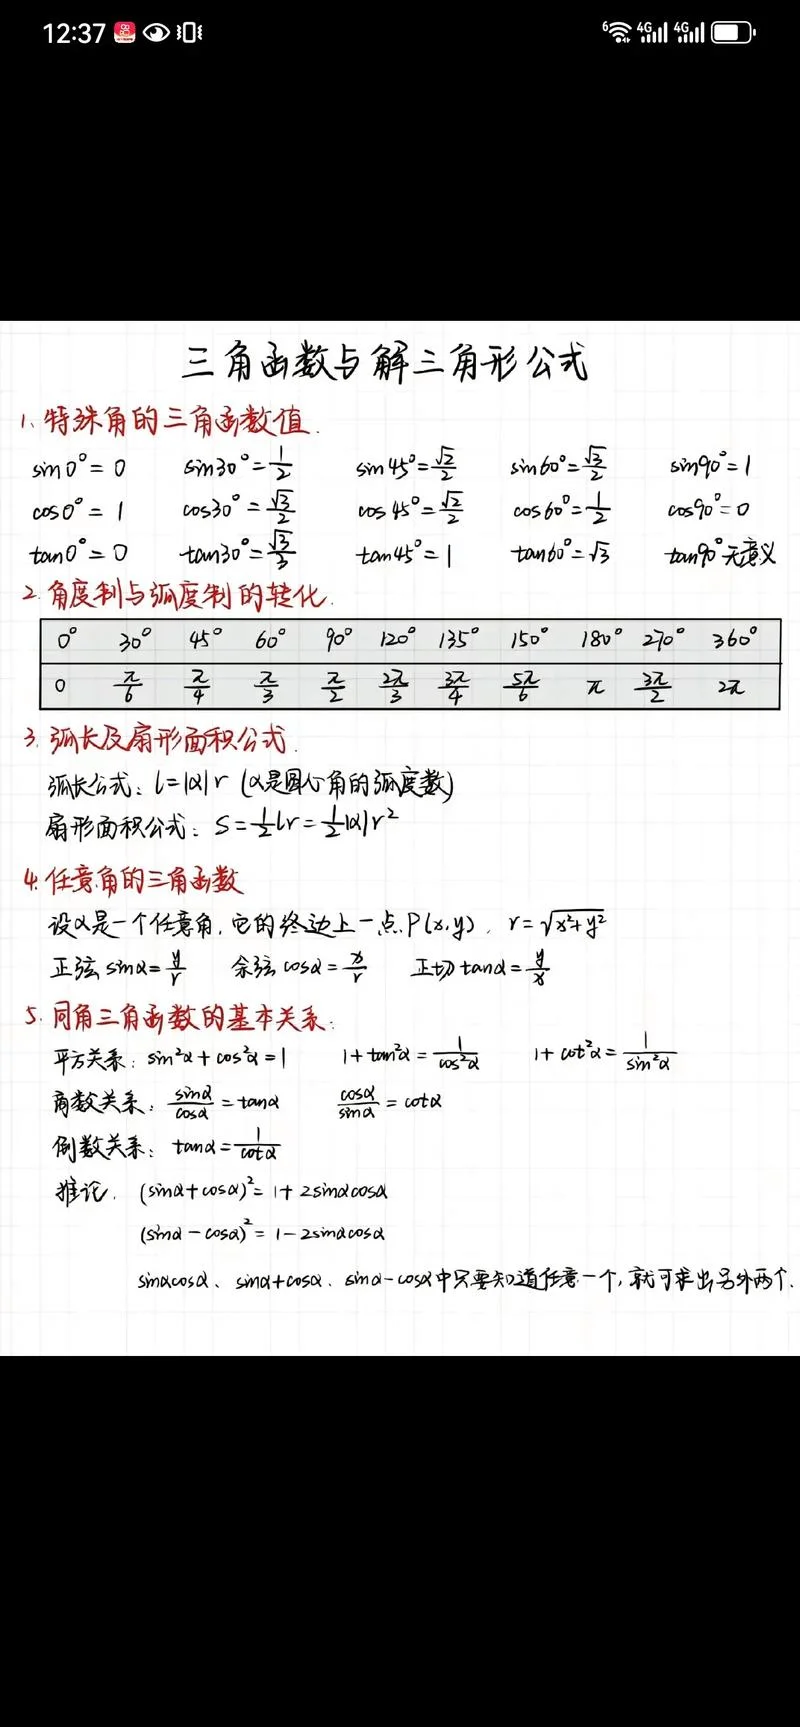 12:37
6 4G 4G
三角函数与解三角形公式
1、特殊角的三角函数值.
sin0°=0 sin30°=1/2 sin45°=√2/2 sin60°=√3/2 sin90°=1
cos0°=1 cos30°=√3/2 cos45°=√2/2 cos60°=1/2 cos90°=0
tan0°=0 tan30°=√3/3 tan45°=1 tan60°=√3 tan90°无意义
2.角度制与弧度制的转化.
0° 30° 45° 60° 90° 120° 135° 150° 180° 270° 360°
0 π/6 π/4 π/3 π/2 2π/3 3π/4 5π/6 π 3π/2 2π
3.弧长及扇形面积公式.
弧长公式：l=|α|r (α是圆心角的弧度数)
扇形面积公式：S=1/2lr=1/2|α|r²
4.任意角的三角函数
设α是一个任意角,它的终边上一点P(x,y), r=√(x²+y²)
正弦sinα=y/r 余弦cosα=x/r 正切tanα=y/x
5.同角三角函数的基本关系：
平方关系：sin²α+cos²α=1 1+tan²α=1/cos²α 1+cot²α=1/sin²α
商数关系：sinα/cosα=tanα cosα/sinα=cotα
倒数关系：tanα=1/cotα
推论. (sinα+cosα)²=1+2sinαcosα
(sinα-cosα)²=1-2sinαcosα
sinαcosα、sinα+cosα、sinα-cosα中只要知道任意一个,就可求出另外两个.